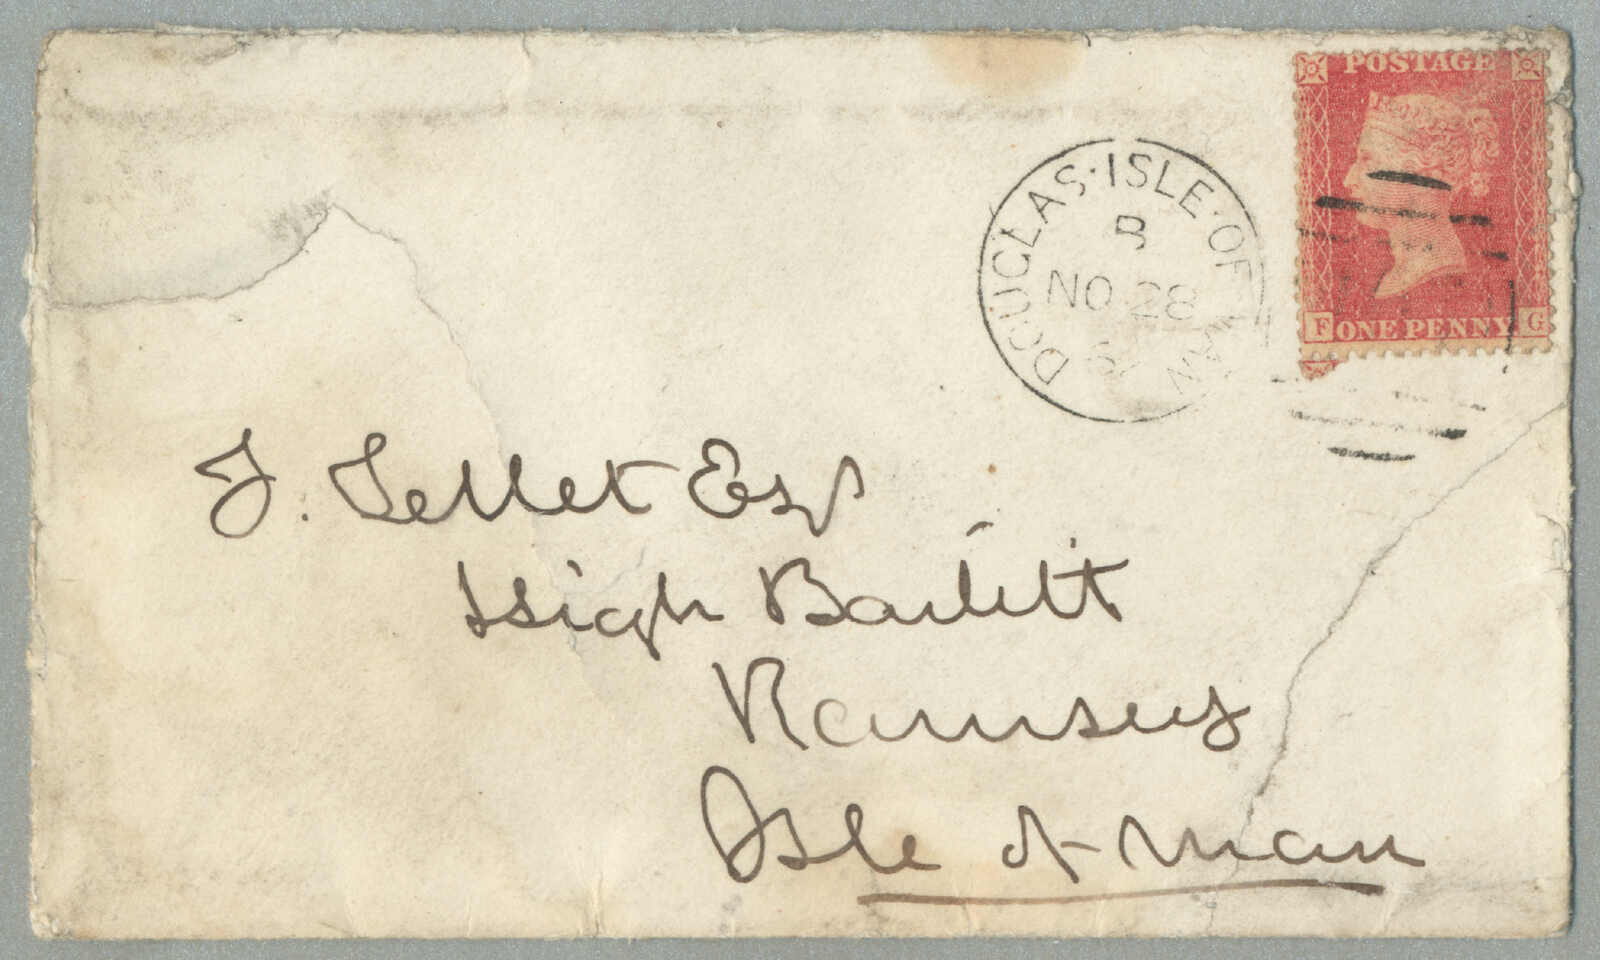 POSTAGE
F ONE PENNY G
DOUGLAS·ISLE·OF MAN
B
NO 28
J. Tellet Esq
High Bartett
Ramsey
Isle of Man